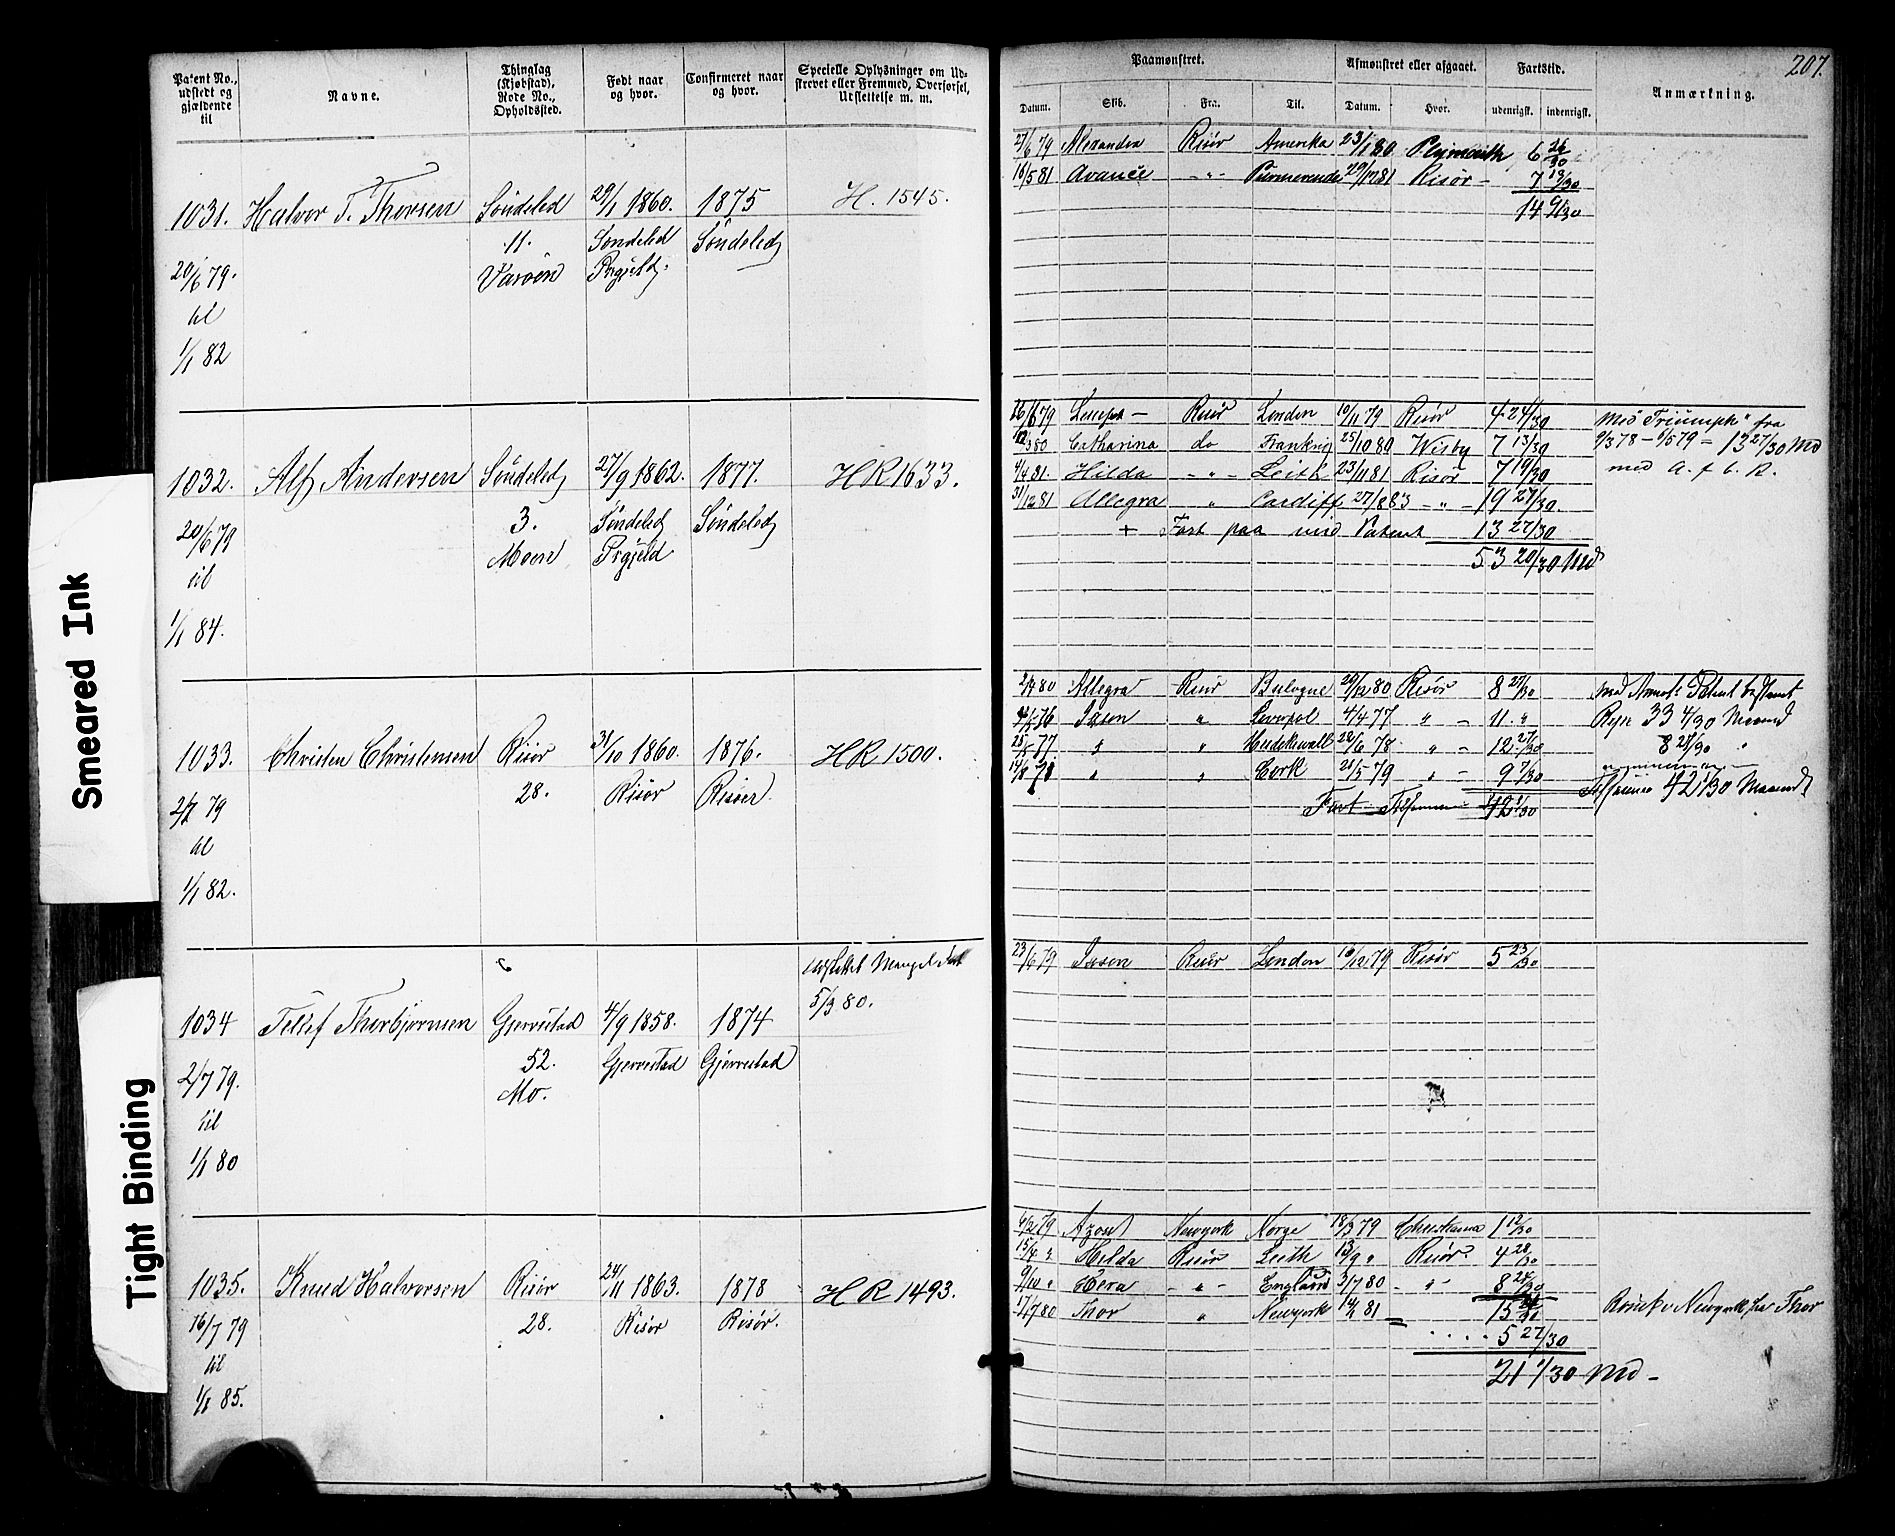 Patent No., udstedt og gjældende til
Navne.
Thinglag (Kjøbstad), Rode No., Opholdssted.
Født naar og hvor.
Confirmeret naar og hvor.
Specielle Oplysninger om Udskrevet eller Fremmed, Overførsel, Udslettelse m. m.
Paamønstret.
Afmønstret eller afgaaet.
Fartstid.
Anmærkning.
207.
Datum.
Skib.
Fra.
Til.
Datum.
Hvor.
udenrigsk.
indenrigsk.
1031. Halvor T. Thorsen Söndeled 29/1 1860. 1875 H. 1545.
11. Söndeled Söndeled
20/6 79. Varöen Prgjeld.
til
1/1 82
27/6 79 Alexandra Risör Amerika 23/1 80 Plymouth 6 26/30
16/5 81 Avance -"- 29/12 81 Risör - 7 13/30
14 9/30
1032. Alf Andersen Söndeled 27/9 1862. 1877. HR 1633.
3. Söndeled Söndeled
20/6 79 Moen Prgjeld
til
1/1 84.
26/6 79 Risör London 10/11 79 Risör 4 24/30
12/3 80 Catharina do Frankrig 25/10 80 Wisby 7 13/30
4/4 81. Hilda -"- Leith 23/11 81 Risör 7 19/30
31/12 81 Allegra " Cardiff 27/8 83 -"- 19 27/30.
+ Fart paa med Patent 13 27/30
53 20/30 Md
Med "Triumph" fra
9/3 78 - 6/5 79 = 13 27/30 Md
med A. f C. R.
1033. Christen Christensen Risör 31/10 1860. 1876. HR 1500.
28. Risör Risöer.
2/7 79
til
1/1 82.
2/4 80 Allegra Risör Bulogne 29/12 80 Risör 8 27/30
4/5 76 Jason " Liverpol 4/4 77 " - 11 "
25/5 77 " " Hudiksvall 22/6 78. " - 12 27/30
14/8 78 " " Cork 21/5 79 " - 9 7/30
Fart Tilsammen 42 1/30
33 4/30 Maaned
8 27/30 "
Tilsammen 42 1/30 Maaned
1034 Tellef Thorbjørnsen Gjerrestad 4/9 1858. 1874
udslettet Mangel
5/3 80.
52. Gjerrestad Gjerrestad
2/7 79. Mo.
til
1/1 80
23/6 79 Jason Risör London 16/12 79 Risör 5 23/30
1035. Knud Halvorsen Risör 24/11 1863. 1878 HR 1493.
16/7 79 28. Risör Risör.
til
1/1 85.
6/2 79 Azow Newyork Norge 18/3 79 Christiania 1 12/30
15/4 " Hilda Risör Leith 13/9 " Risör. 4 28/30
9/10 " Hera -"- England 3/7 80 -"- 8 24/30
17/7 80 Thor " Newyork 81 15
. . . . 5 27/30
21 1/30 Md -
Newyork fra Thor
Smeared Ink
Tight Binding